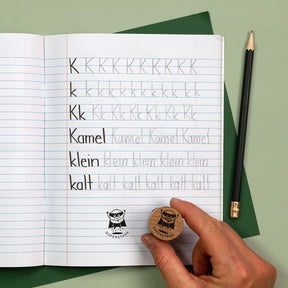 K K K K K K K K K K
k k k k k k k k k k
Kk Kk Kk Kk Kk Kk Kk
Kamel Kamel Kamel Kamel
klein klein klein klein klein
kalt kalt kalt kalt kalt kalt